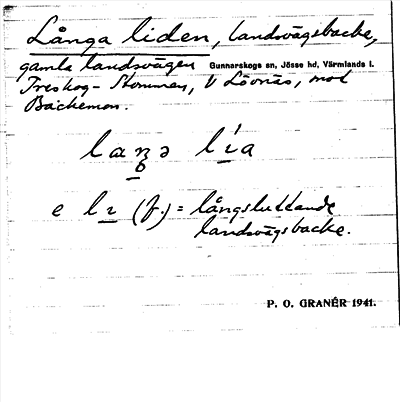 Långa liden, landsvägsbacke,
gamla landsvägen Gunnarskogs sn, Jösse hd, Värmlands l.
Treskog - Stommen, V Lövnäs, mot
Bäckemon.
e (f.) = långsluttande
landsvägsbacke.
P. O. GRANÉR 1941.